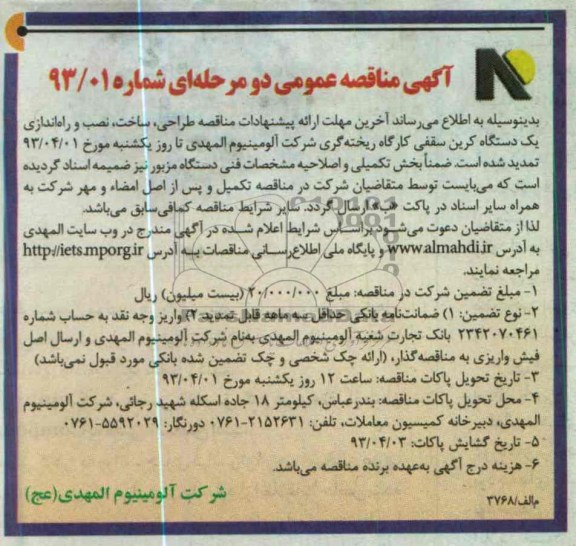 آگهی مناقصه عمومی دو مرحله‌ای شماره ۹۳/۰۱
بدینوسیله به اطلاع می‌رساند آخرین مهلت ارائه پیشنهادات مناقصه طراحی، ساخت، نصب و راه‌اندازی
یک دستگاه کرین سقفی کارگاه ریخته‌گری شرکت آلومینیوم المهدی تا روز یکشنبه مورخ ۹۳/۰۴/۰۱
تمدید شده است. ضمناً بخش تکمیلی و اصلاحیه مشخصات فنی دستگاه مزبور نیز ضمیمه اسناد گردیده
است که می‌بایست توسط متقاضیان شرکت در مناقصه تکمیل و پس از اصل امضاء و مهر شرکت به
همراه سایر اسناد در پاکت ارسال گردد. سایر شرایط مناقصه کمافی‌سابق می‌باشد.
لذا از متقاضیان دعوت می‌شود براساس شرایط اعلام شده در آگهی مندرج در وب سایت المهدی
به آدرس www.almahdi.ir و پایگاه ملی اطلاع‌رسانی مناقصات به آدرس http://iets.mporg.ir
مراجعه نمایند.
۱- مبلغ تضمین شرکت در مناقصه: مبلغ ۲۰/۰۰۰/۰۰۰ (بیست میلیون) ریال
۲- نوع تضمین: ۱) ضمانت‌نامه بانکی حداقل سه ماهه قابل تمدید ۲) واریز وجه نقد به حساب شماره
۲۳۴۲۰۷۰۴۶۱ بانک تجارت شعبه آلومینیوم المهدی به‌نام شرکت آلومینیوم المهدی و ارسال اصل
فیش واریزی به مناقصه‌گذار، (ارائه چک شخصی و چک تضمین شده بانکی مورد قبول نمی‌باشد)
۳- تاریخ تحویل پاکات مناقصه: ساعت ۱۲ روز یکشنبه مورخ ۹۳/۰۴/۰۱
۴- محل تحویل پاکات مناقصه: بندرعباس، کیلومتر ۱۸ جاده اسکله شهید رجائی، شرکت آلومینیوم
المهدی، دبیرخانه کمیسیون معاملات، تلفن: ۲۱۵۲۶۳۱-۰۷۶۱ دورنگار: ۵۵۹۲۰۲۹-۰۷۶۱
۵- تاریخ گشایش پاکات: ۹۳/۰۴/۰۳
۶- هزینه درج آگهی به‌عهده برنده مناقصه می‌باشد.
شرکت آلومینیوم المهدی (عج)
م‌الف/۳۷۶۸